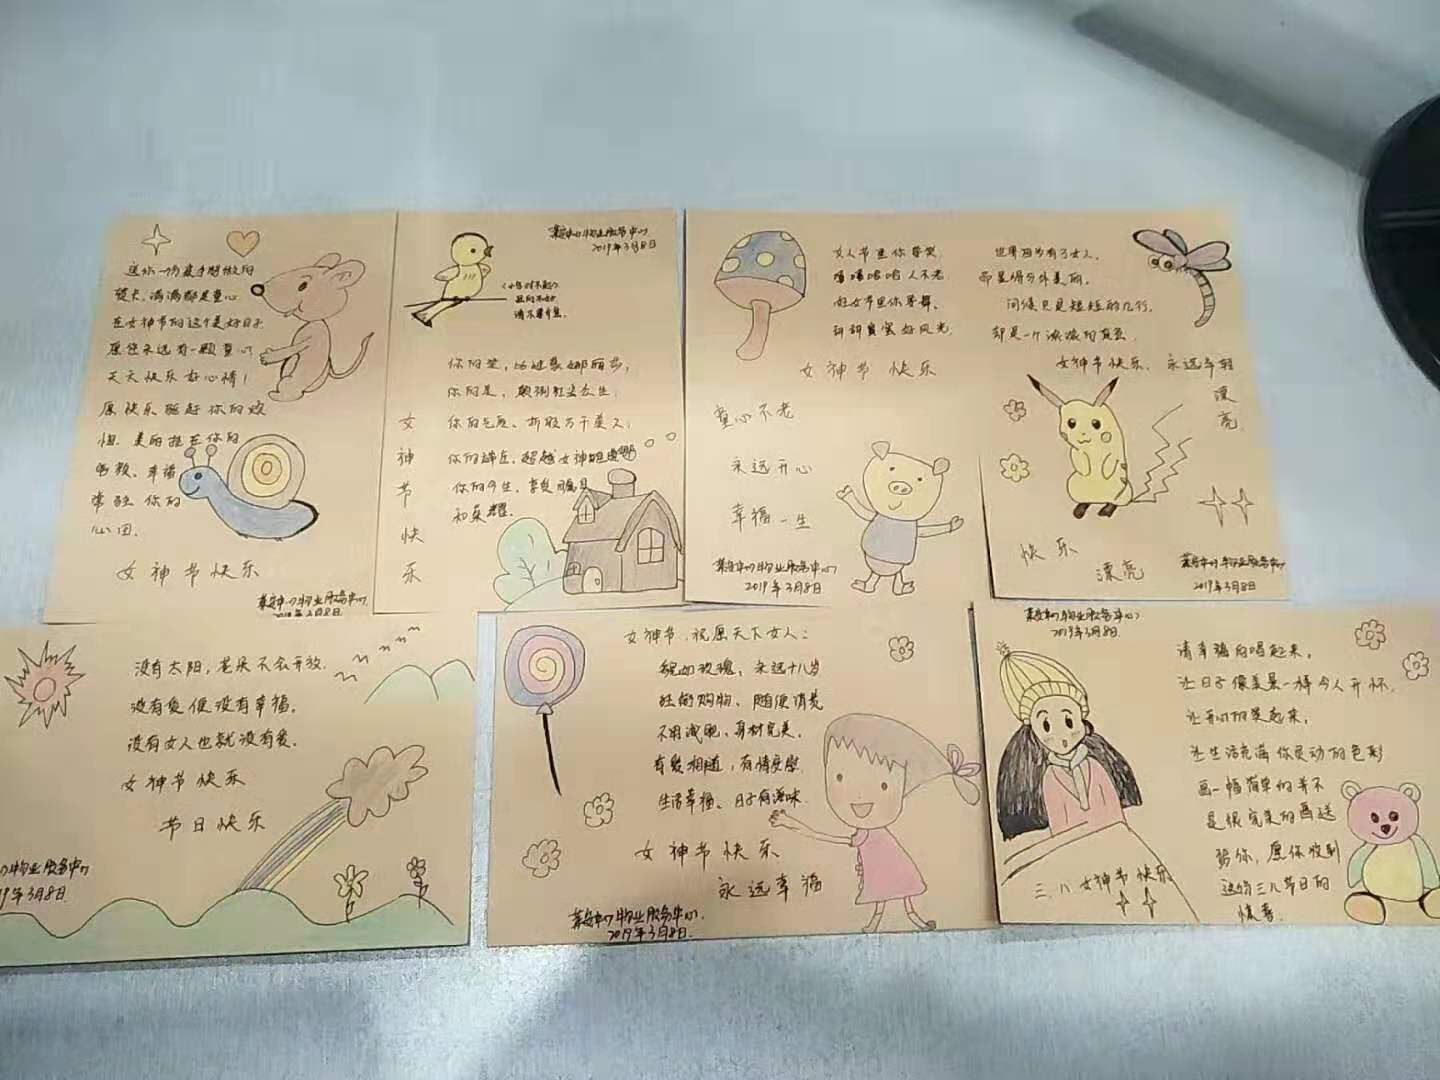 送你一份最手想做的
贺卡，满满都是童心
在女神节的这个美好日子
愿您永远有一颗童心
天天快乐好心情！
愿快乐驱赶你的烦
恼、美丽挂在你的
幸福
你的
心田
女神节快乐
物业服务中心
2019年3月8日
物业服务中心
2019年3月8日
请不要介意
你的笑，比过蒙娜丽莎，
你的美，颠倒
众生，
你的气质、折服万千美人，
你的
超越女神
你的今生，享受
和荣耀
女神节快乐
女人节里你导
嘻嘻哈哈人不老
妇女节里你
甜甜蜜蜜好风光
女神节快乐
童心不老
永远开心
幸福一生
物业服务中心
2019年3月8日
世界因为有了女人，
而显得分外美丽。
问候只是短短的几行，
却是一个浓浓的真意。
女神节快乐，永远年轻
漂亮
快乐
漂亮
物业服务中心
2019年3月8日
没有太阳，花朵不会开放，
没有爱便没有幸福，
没有女人也就没有爱。
女神节快乐
节日快乐
物业服务中心
19年3月8日
女神节，祝愿天下女人：
貌如玫瑰、永远十八岁
购物、随便消费
不用减肥、身材完美，
有爱相随，有情
生活幸福、日子有滋味
女神节快乐
永远幸福
物业服务中心
2019年3月8日
物业服务中心
2019年3月8日
请幸福的唱起来，
让日子像美景一样令人开怀，
让开心的笑起来，
让生活充满你灵动的色彩
画一幅简单的并不
是很完美的画送
给你，愿你收到
这份三八节日的
惊喜
三.八女神节快乐